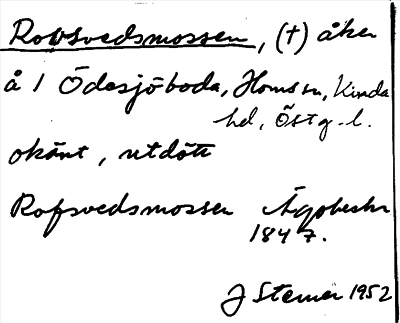 Rovsvedsmossen, (†) åker
å 1 Ödesjöboda, Homs sn, Kinda
hd, Östg-l.
okänt, utdött
Rofsvedsmossen Ägobeskr
1847.
J Stemer 1952